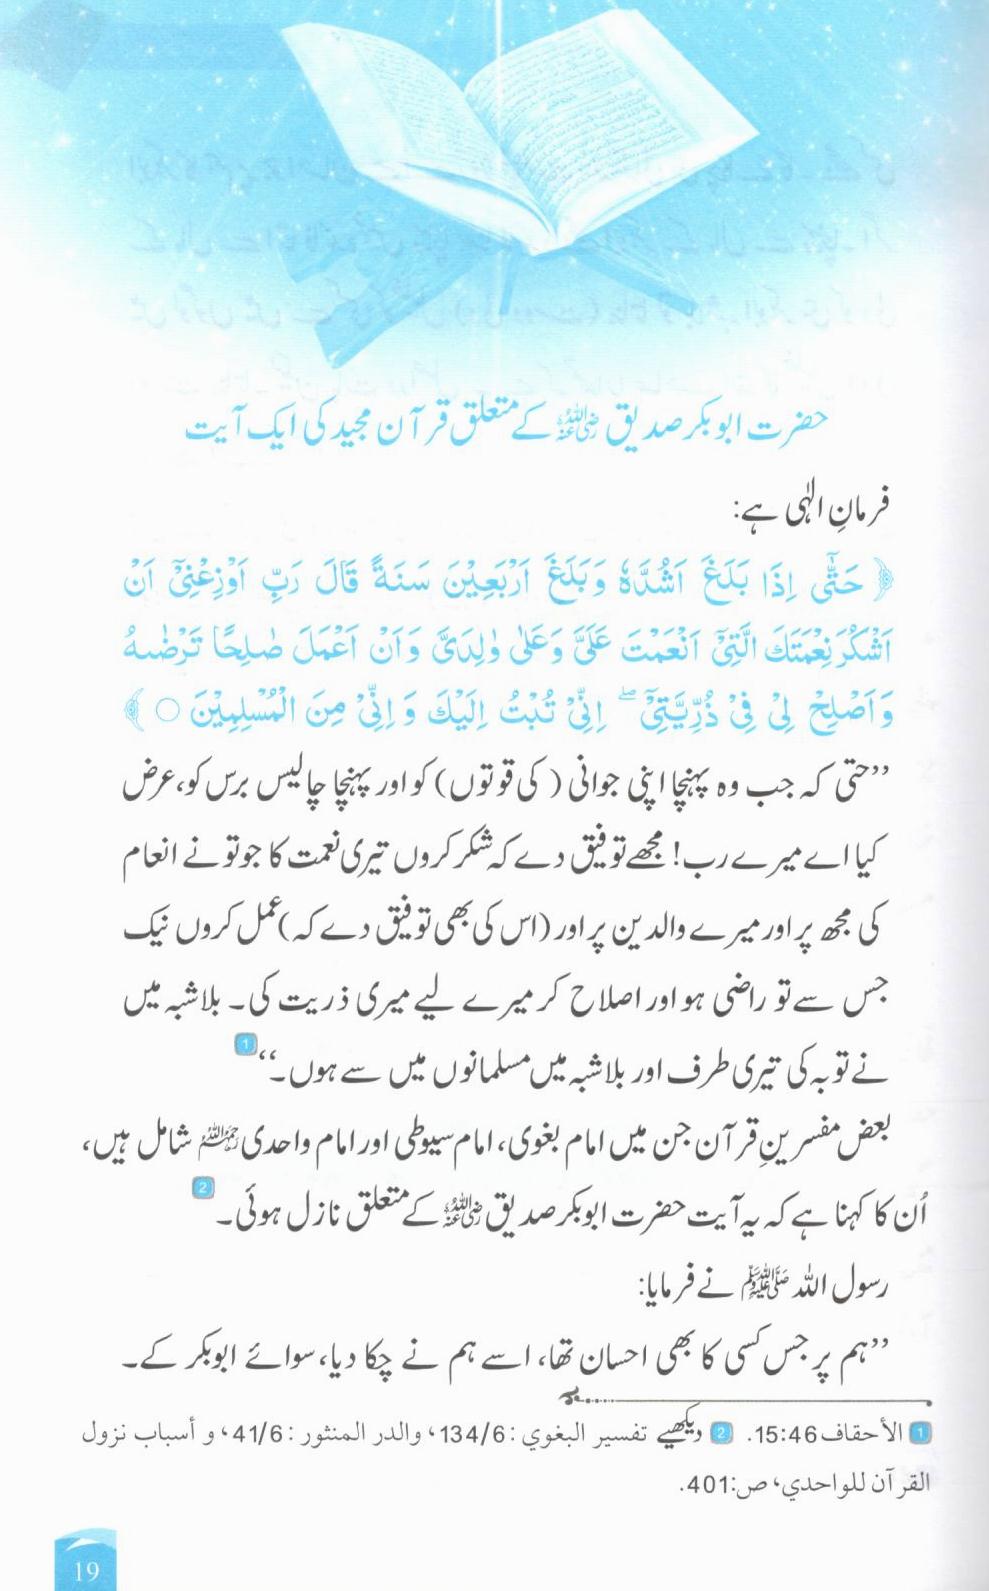 حضرت ابوبکر صدیق رضی اللہ عنہ کے متعلق قرآن مجید کی ایک آیت
فرمانِ الٰہی ہے:
﴿ حَتّٰۤی اِذَا بَلَغَ اَشُدَّهٗ وَبَلَغَ اَرْبَعِیْنَ سَنَةً قَالَ رَبِّ اَوْزِعْنِیْۤ اَنْ
اَشْكُرَ نِعْمَتَكَ الَّتِیْۤ اَنْعَمْتَ عَلَیَّ وَعَلٰی وٰلِدَیَّ وَاَنْ اَعْمَلَ صٰلِحًا تَرْضٰىهُ
وَاَصْلِحْ لِیْ فِیْ ذُرِّیَّتِیْ ۖۚ اِنِّیْ تُبْتُ اِلَیْكَ وَ اِنِّیْ مِنَ الْمُسْلِمِیْنَ ○ ﴾
’’حتی کہ جب وہ پہنچا اپنی جوانی (کی قوتوں) کو اور پہنچا چالیس برس کو، عرض
کیا اے میرے رب! مجھے توفیق دے کہ شکر کروں تیری نعمت کا جو تو نے انعام
کی مجھ پر اور میرے والدین پر اور (اس کی بھی توفیق دے کہ) عمل کروں نیک
جس سے تو راضی ہو اور اصلاح کر میرے لیے میری ذریت کی۔ بلاشبہ میں
نے توبہ کی تیری طرف اور بلاشبہ میں مسلمانوں میں سے ہوں۔‘‘ 1
بعض مفسرینِ قرآن جن میں امام بغوی، امام سیوطی اور امام واحدی رحمہم اللہ شامل ہیں،
اُن کا کہنا ہے کہ یہ آیت حضرت ابوبکر صدیق رضی اللہ عنہ کے متعلق نازل ہوئی۔ 2
رسول اللہ ﷺ نے فرمایا:
’’ہم پر جس کسی کا بھی احسان تھا، اسے ہم نے چکا دیا، سوائے ابوبکر کے۔
1 الأحقاف 15:46. 2 دیکھیے تفسير البغوي: 134/6، والدر المنثور: 41/6، و أسباب نزول
القرآن للواحدي، ص:401.
19